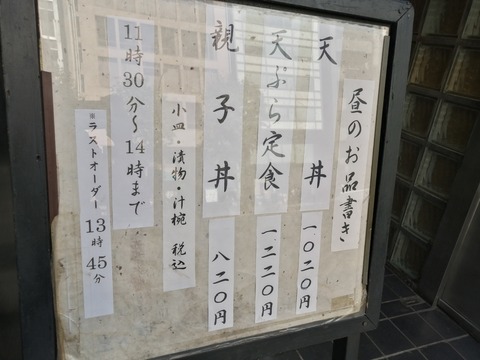 昼のお品書き
天丼
一〇二〇円
天ぷら定食
一二二〇円
親子丼
八二〇円
小皿・漬物・汁椀 税込
11時30分～14時まで
※ラストオーダー13時45分